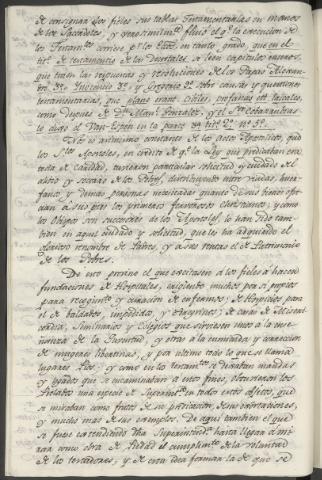 de consignar los fieles sus tablas testamentarias en manos
de los Sacerdotes, y una similit.d fluió el q.e la execucion de
los testam.tos corriese p.r los en tanto grado, que en el
tit.o de testamentis de las Decretales se leen capitulos enteros,
que traen las respuestas y resoluciones de los Papas Alexan-
dro 3.o Inocencio 3.o y Gregorio 9.o sobre causas y questiones
testamentarias, que plane erant Civiles, profanas et laicales,
como despues de D.n Man.l Gonzalez, y el S.r Cobarrubias
lo dixo el Van-Espen en la parte tit.
Es asimismo constante de los actos Apostolicos, que
los S.tos Apostoles, en credito de q.e la Ley que predicaban era
toda de caridad, tuvieron particular solicitud y cuidado del
alivio y socorro de los Pobres, distribuyendo entre viudas, huer-
fanos, y demas personas necesitadas quanto de sus bienes ofre-
cian á sus pies los primeros fervorosos christianos, y como
los Obispos son succesores de los Apostoles, lo han sido tam-
bien en aquel cuidado y solicitud, que les ha adquirido el
glorioso renombre de Padres, y á sus rentas el de Patrimonio
de los Pobres.
De esto provino el que excitasen á los fieles á hacer
fundaciones de Hospitales, erigiendo muchos por si propios
para recogim.to y curacion de enfermos; de Hospicios para
el de baldados, impedidos, y Peregrinos; de casas de Miseri-
cordia, Seminarios y Colegios que sirviesen unos á la ense-
ñanza de la Juventud, y otras á la enmienda y correccion
de mugeres libertinas, y por ultimo todo lo que se llama
lugares Pios; y como en los testam.tos se dexaban mandas
y legados que se encaminaban á estos fines, obtuvieron los
Prelados una especie de Superint.a en todos estos objetos, que
se miraban como frutos de su predicacion, de sus exortaciones,
y mucho mas de sus exemplos. De aqui tambien el que
se fuese extendiendo dha Superintend.a hasta llegar á mi-
rar como obra de Piedad el cumplim.to de la voluntad
de los testadores, y de esta idea forman la de que se